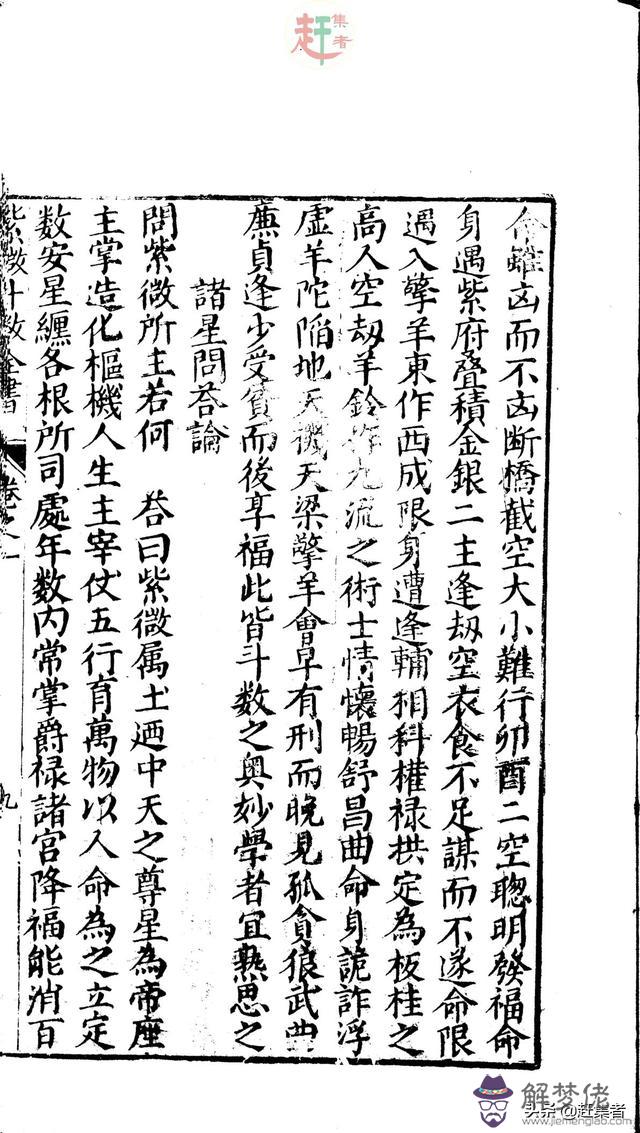 赶集者
命雖凶而不凶断橋截空大小難行卯酉二空聰明發福命
身遇紫府叠積金銀二主逢刼空衣食不足謀而不遂命限
遇入擎羊東作西成限身遭逢輔相科權禄拱定為板桂之
高人空刼羊鈴作九流之術士情懷暢舒昌曲命身詭詐浮
虚羊陀陷地天機天梁擎羊會早有刑而晚見孤貪狼武曲
廉貞逢少受貧而後享福此皆斗数之奥妙學者宜熟思之
諸星問荅論
問紫微所主若何 荅曰紫微属土廼中天之尊星為帝座
主掌造化樞機人生主宰仗五行育萬物以人命為之立定
数安星纏各根所司處年数内常掌爵禄諸宫降福能消百
紫微斗数全書 卷之一 九
解梦佬
头杀@赶集者
www.jiemenglao.com